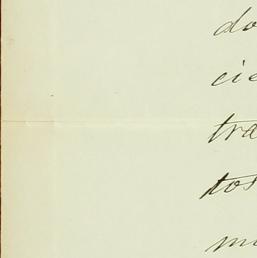 do
cie
tra
tos
mi